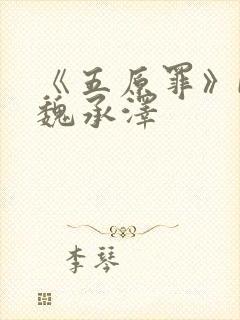 《五原罪》
魏承澤
李琴